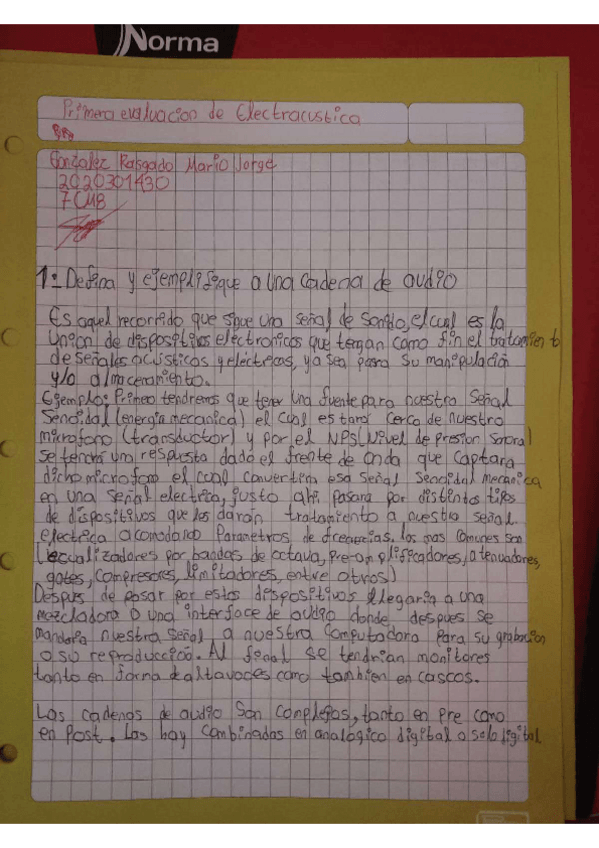 Norma
Primera evaluacion de Electracustica
Gonzalez Rasgado Mario Jorge
2020301430
7CM8
1: Defina y ejemplifique a una cadena de audio
Es aquel recorrido que sigue una señal de sonido, el cual es la
union de dispositivos electronicos que tengan como fin el tratamiento
de señales acústicas y electricas, ya sea para su manipulación
y/o almacenamiento.
Ejemplo: Primeo tendremos que tener una fuente para nuestra Señal
Senoidal (energia mecanica) el cual estará cerca de nuestro
microfono (transductor) y por el NPS (Nivel de presion sonora)
se tendrá una respuesta dado el frente de onda que captara
dicho microfono el cual convertira esa señal Senoidal mecanica
en una señal electrica, justo ahi pasara por distintos tipos
de dispositivos que les daran tratamiento a nuestra señal
electrica acomodando Parametros de frecuencias, los mas comunes son
(ecualizadores por bandas de octava, pre-amplificadores, atenuadores,
gates, compresores, limitadores, entre otros)
Despues de pasar por estos dispositivos llegaria a una
mezcladora o una interface de audio donde despues se
mandaria nuestra señal a nuestra computadora para su grabacion
o su reproducció. Al final se tendrian monitores
tanto en forma de altavoces como tambien en cascos.
Las cadenas de audio son complejas, tanto en Pre como
en Post. Las hay combinadas en analógico digital o solo digital